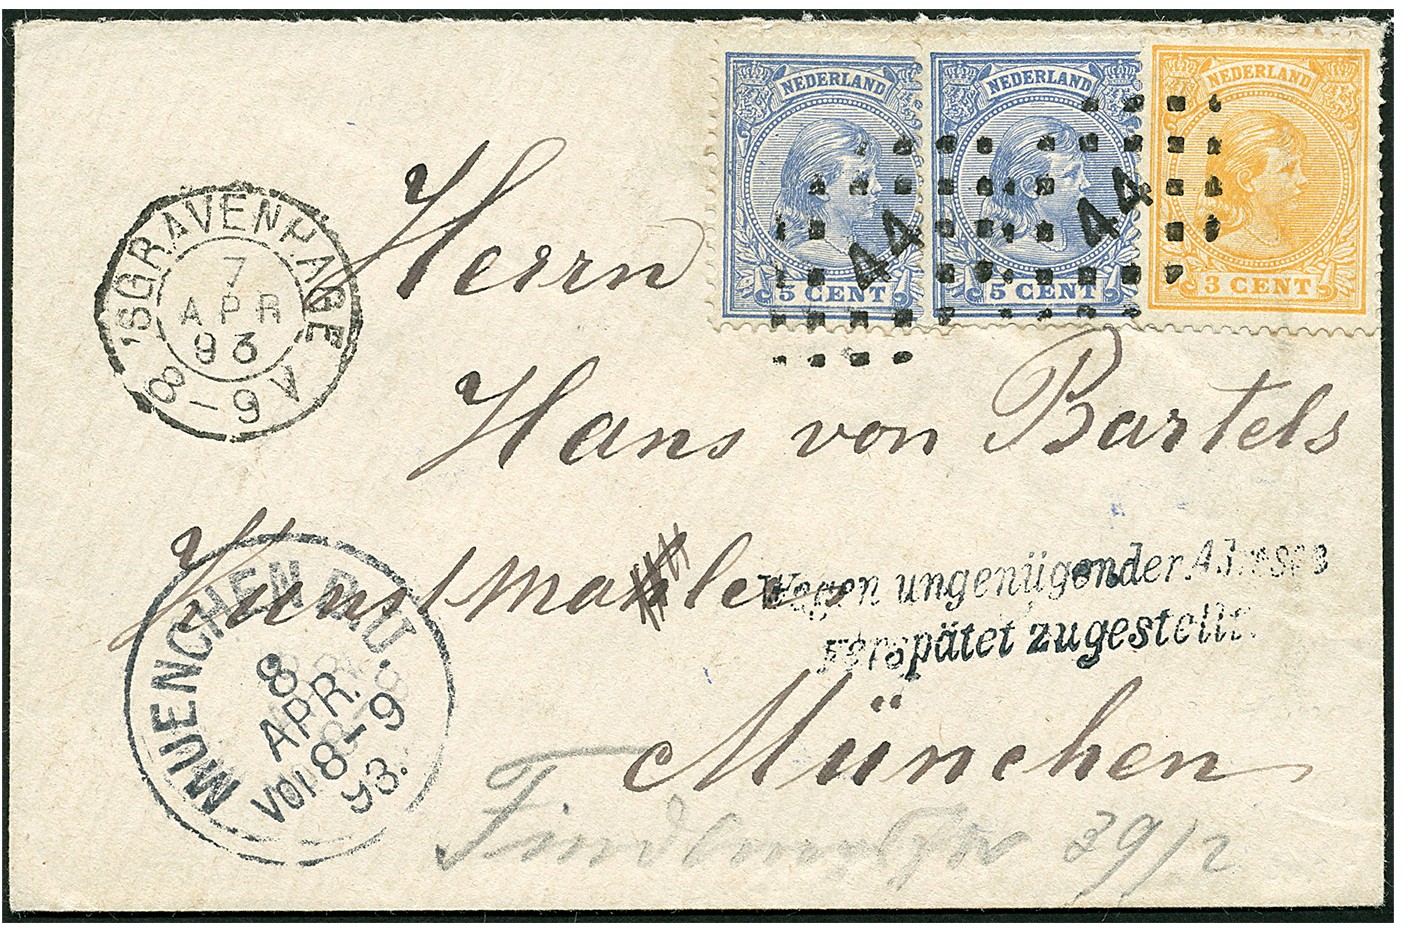 NEDERLAND
5 CENT
NEDERLAND
5 CENT
NEDERLAND
3 CENT
44
44
'SGRAVENHAGE
7
APR
93
8-9 V
Herrn
Hans von Bartels
Kunstmahler
Wegen ungenügender Adresse
verspätet zugestellt.
MUENCHEN
8
APR.
VOR 8-9
93.
München
39/2